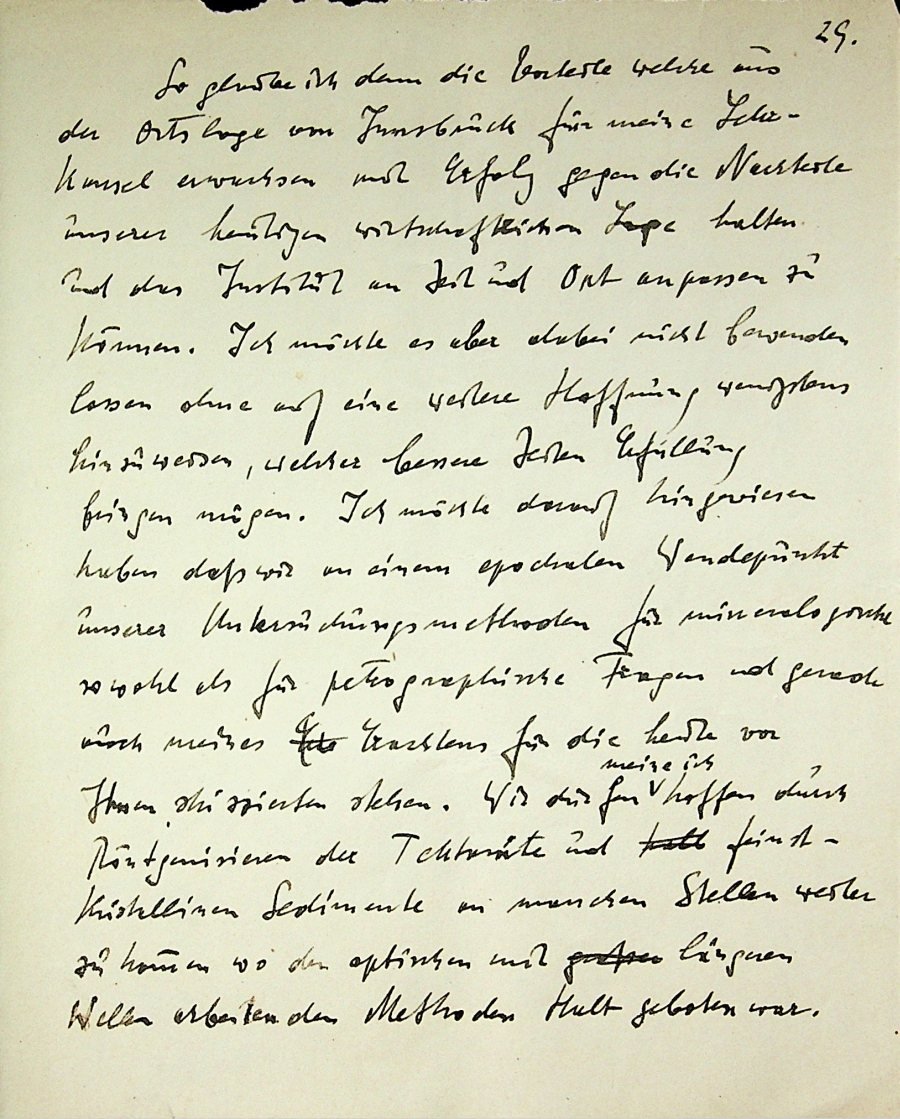 29.
So glaube ich denn die Vorteile welche aus
der Ortslage von Innsbruck für meine Lehr-
kanzel erwachsen mit Erfolg gegen die Nachteile
unserer heutigen wirtschaftlichen Lage halten
und das Institut an Zeit und Ort anpassen zu
können. Ich möchte es aber dabei nicht bewenden
lassen ohne auf eine weitere Hoffnung wenigstens
hinzuweisen, welcher bessere Zeiten Erfüllung
bringen mögen. Ich möchte darauf hingewiesen
haben daß wir an einem epochalen Wendepunkt
unserer Untersuchungsmethoden für mineralogische
sowohl als für petrographische Fragen und gerade
auch meines Erachtens für die heute vor
Ihnen skizzierten stehen. Wir dürfen meine ich hoffen durch
Röntgenisieren der Tektonite und feinst-
kristallinen Sedimente an manchen Stellen weiter
zu kommen wo den optischen mit längeren
Wellen arbeitenden Methoden Halt geboten war.